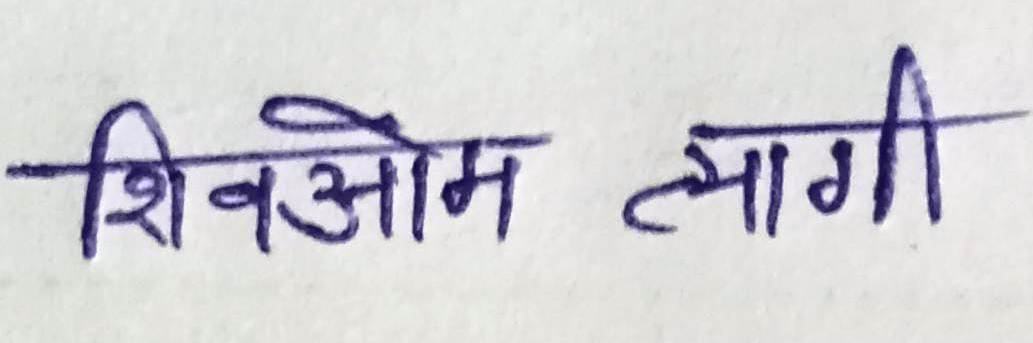 शिवओम त्यागी